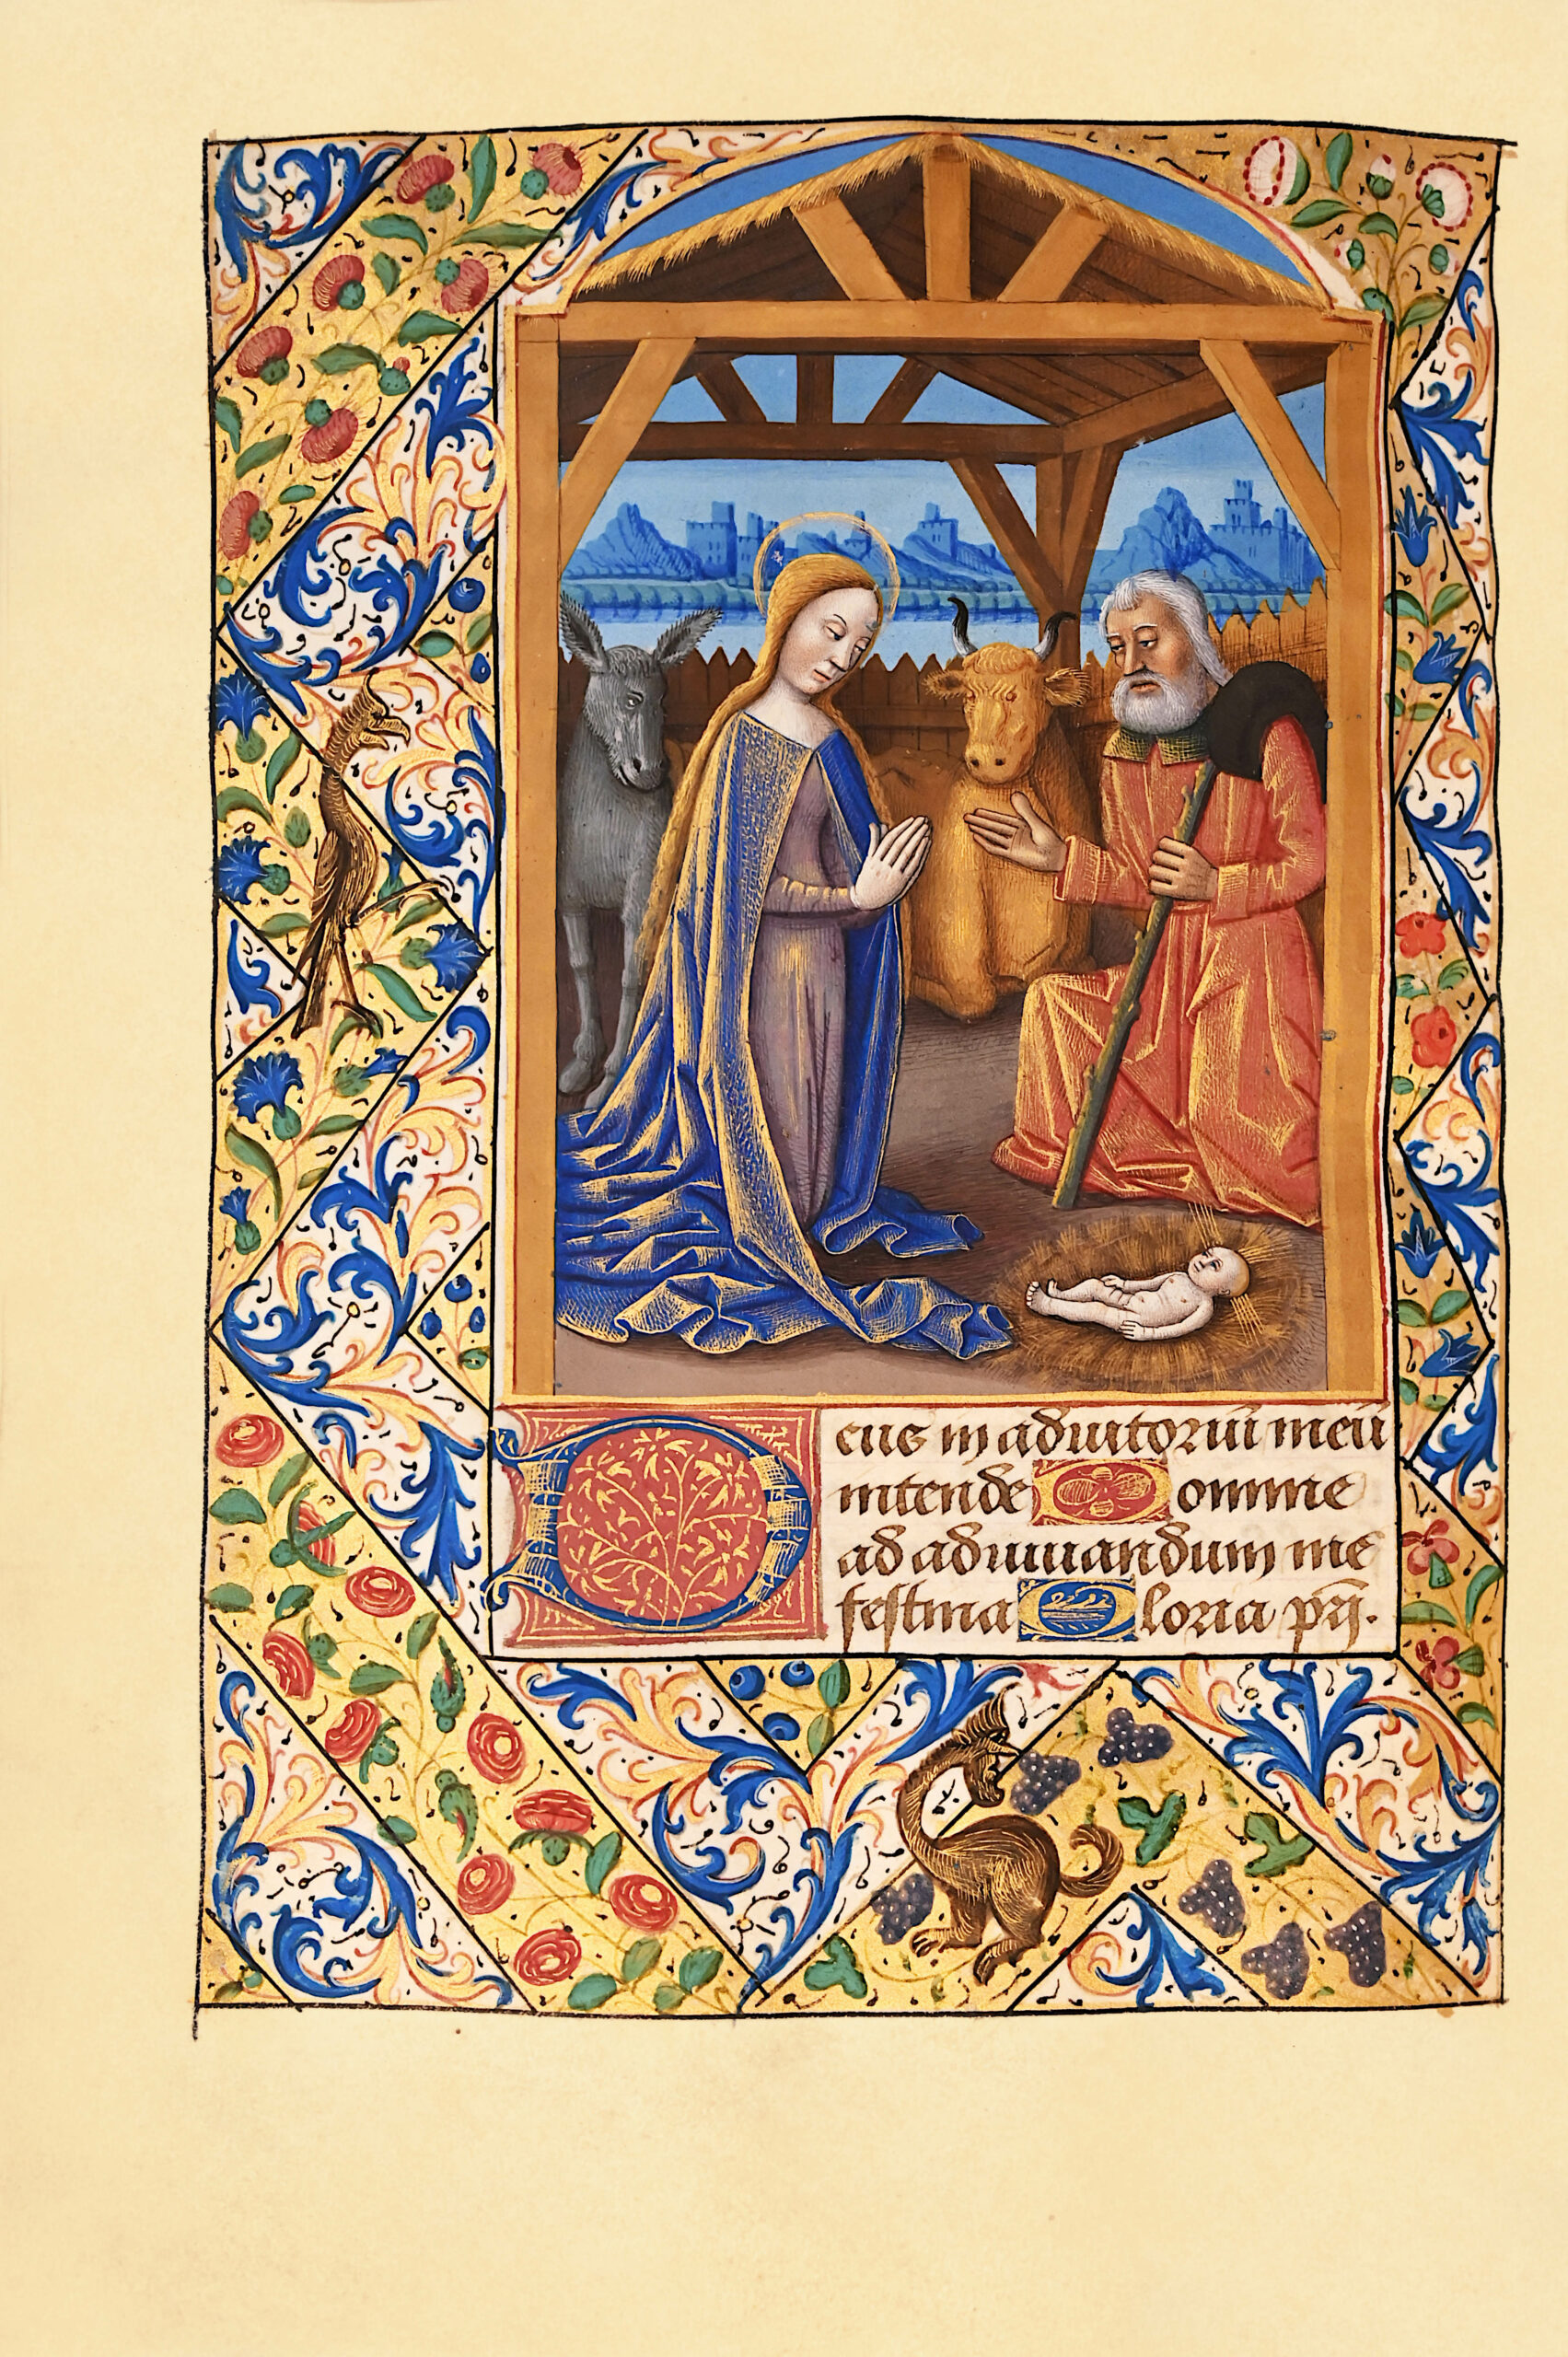 Deus in adiutoriũ meũ
intende Domine
ad adiuuandum me
festina Gloria pr̃i.